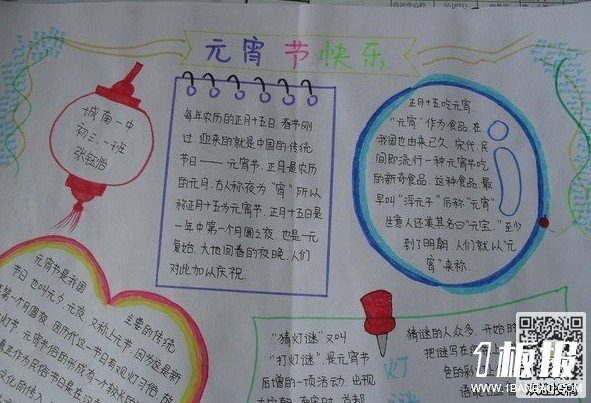 元宵节快乐
城南一中
初三.一班
张钰怡
每年农历的正月十五日.春节刚
过,迎来的就是中国的传统
节日——元宵节.正月是农历
的元月,古人称夜为"宵"所以
称正月十五为元宵节.正月十五日是
一年中第一个月圆之夜.也是一元
复始.大地回春的夜晚.人们
对此加以庆祝.
正月十五吃元宵.
"元宵"作为食品.在
我国也由来已久.宋代.民
间即流行一种元宵节吃
的新奇食品.这种食品.最
早叫"浮元子"后称"元宵"
生意人还美其名曰"元宝."至少
到了明朝.人们就以"元
宵"来称.
元宵节是我国
主要的传统
节日.也叫元夕.元夜.又称上元节.因为这是新
第一个月圆夜.因历代这一节日有观灯习俗.故
灯节.元宵节俗的形成有一个较长的
真正作为民俗节日是在汉
文化的传入
"猜灯谜"又叫
"打灯谜".是元宵节
后增的一项活动.出现
猜谜的人众多.开始的
把谜写在
色的彩
1板报
WWW.1BANBAO.COM
欢迎投稿